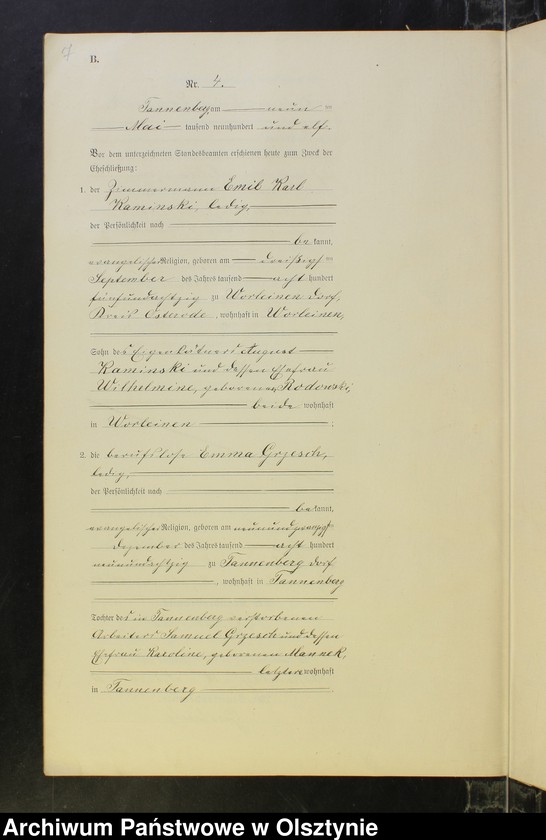 B.
Nr. 4.
Tannenberg am neun
Mai tausend neunhundert und elf.
Vor dem unterzeichneten Standesbeamten erschienen heute zum Zweck der
Eheschließung:
1. der Zimmermann Emil Karl
Kaminski, ledig,
der Persönlichkeit nach
be kannt,
evangelischer Religion, geboren am dreißigs=
September des Jahres tausend acht hundert
fünfundachtzig zu Worleinen Dorf,
Kreis Osterode, wohnhaft in Worleinen,
Sohn des Eigenkätners August
Kaminski und dessen Ehefrau
Wilhelmine, geborenen Rodowski,
beide wohnhaft
in Worleinen ;
2. die berufslose Emma Grzesch,
ledig,
der Persönlichkeit nach
be kannt,
evangelischer Religion, geboren am neunundzwanzigs
Dezember des Jahres tausend acht hundert
neunundachtzig zu Tannenberg Dorf
, wohnhaft in Tannenberg
Tochter des in Tannenberg verstorbenen
Arbeiters Samuel Grzesch und dessen
Ehefrau Karoline, geborenen Mannek,
letztere wohnhaft
in Tannenberg
Archiwum Państwowe w Olsztynie